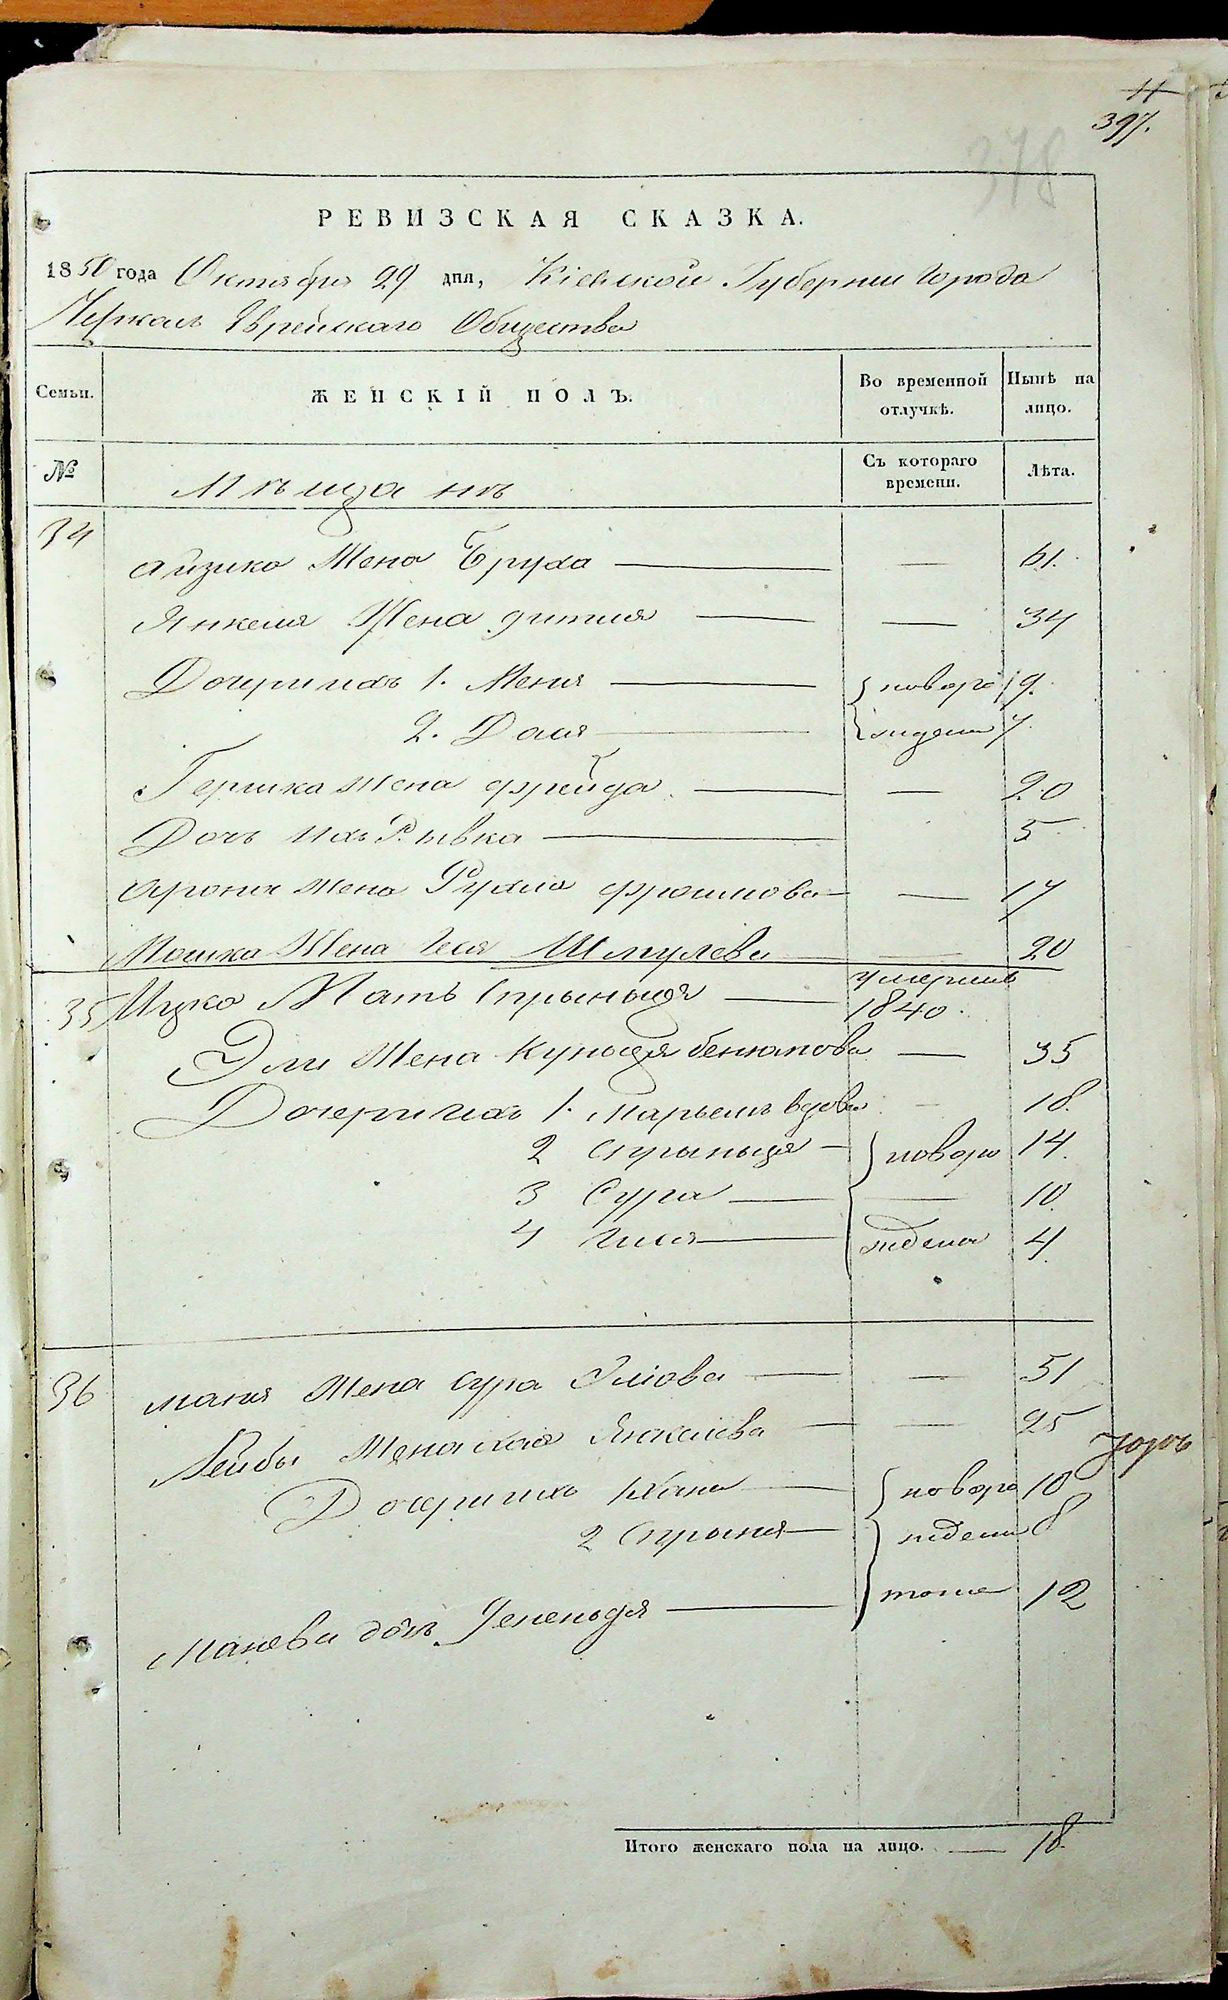 11
397.
378
РЕВИЗСКАЯ СКАЗКА.
1850 года Октября 29 дня, Кіевской Губерніи Города
Черкасъ Еврейскаго Общества
Семьи. ЖЕНСКІЙ ПОЛЪ. Во временной отлучкѣ. Нынѣ на лицо.
№ Мѣщанъ Съ котораго времени. Лѣта.
34
Айзика Жена Бруха — — 61.
Янкеля Жена Гитля — — 34
Дочери ихъ 1. Меня — новоро 9.
2. Дася — жденн 7.
Гершка жена Фрейда — — 20
Дочь ихъ Рывка — 5
Арона жена Рухля — 17
Мошка Жена Шмулева — 20
35 Ицко Мать Спрынця — умерша 1840.
Эли Жена Куньця — 35
Дочери ихъ 1. Марьемъ вдова — 18.
2 Спрынця — новоро 14.
3 Сура — — 10.
4 — ждена 4.
36 Маня Жена Сура — — 51
Лейбы Жена Хая Янкелева — — 25
Дочери ихъ 1 Хана — новоро 10
2 Спрыня — ждены 8
Манева дочь — тоже 12
Итого женскаго пола на лицо. — 18.